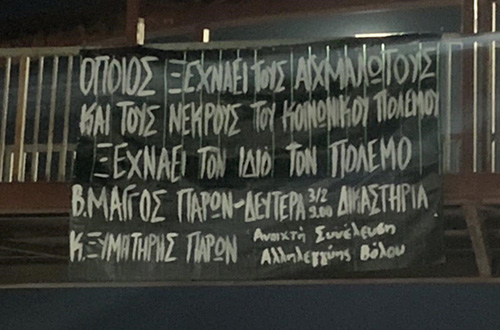 ΟΠΟΙΟΣ ΞΕΧΝΑΕΙ ΤΟΥΣ ΑΙΧΜΑΛΩΤΟΥΣ
ΚΑΙ ΤΟΥΣ ΝΕΚΡΟΥΣ ΤΟΥ ΚΟΙΝΩΝΙΚΟΥ ΠΟΛΕΜΟΥ
ΞΕΧΝΑΕΙ ΤΟΝ ΙΔΙΟ ΤΟΝ ΠΟΛΕΜΟ
Β.ΜΑΓΓΟΣ ΠΑΡΩΝ-ΔΕΥΤΕΡΑ 3/2 9.00 ΔΙΚΑΣΤΗΡΙΑ
Κ.ΞΥΜΗΤΗΡΗΣ ΠΑΡΩΝ
Ανοιχτή Συνέλευση
Αλληλεγγύης Βόλου